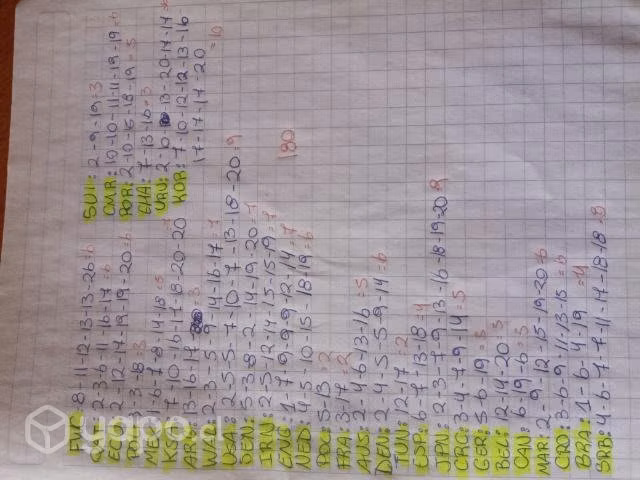 FWC 8-11-12-13-13-26=6
2-3-6-11-16-17=6
2-12-17-19-19-20=6
3-3-18=3
1-6-7-8-14-18=6
7-10-16-17-18-20-20
13-16-17=3
2-3-5-9-14-16-17=7
USA: 2-5-5-7-10-7-13-18-20=9
5-3-8-2-14-19-20=7
IRN: 2-5-12-14-15-15-19=7
ENG: 1-7-9-9-9-12-14=7
NED: 4-5-10-15-18-19=6
POL: 5-13=2
FRA: 3-17=2
AUS: 2-4-6-13-16=5
DEN: 2-4-5-5-9-14=6
TUN: 12-17=2
ESP: 6-7-13-18=4
JPN: 2-3-7-9-13-16-18-19-20=9
CRC: 3-4-7-9-14=5
GER: 5-6-19=3
BEL: 12-14-20=3
CAN: 6-19-6=3
MAR: 2-9-12-15-19-20=6
CRO: 3-6-9-11-13-15=6
BRA: 1-6-4-19=4
SRB: 4-6-7-7-11-17-18-18=9
SUI: 2-9-19=3
CMR: 10-10-11-11-19-19=6
POR: 2-10-15-18-19=5
GHA: 7-13-16=3
URU: 2-10-13-20-17-17
KOR: 7-10-12-12-13-16
17-17-17-20=10
180
yapo.cl